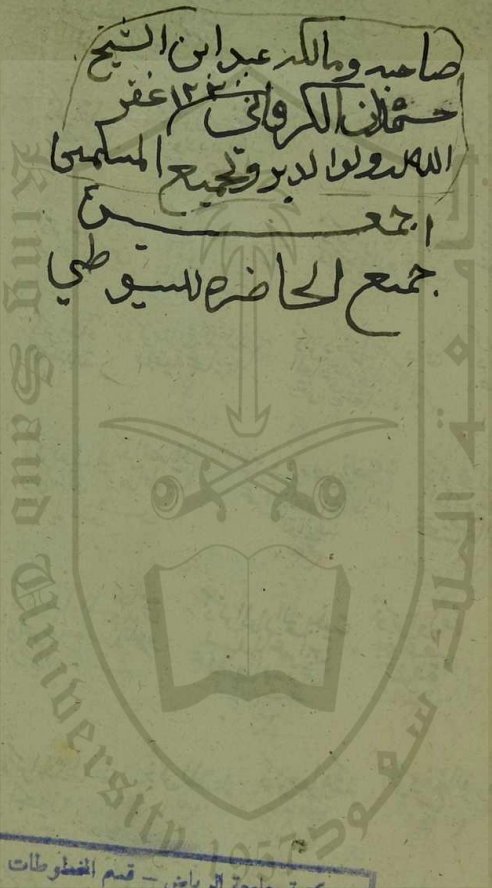 صاحبه ومالكه عبد ابن الشيخ
عثمان الكرواني ١٢٢٠ غفر
الله له ولوالديه ولجميع المسلمين
اجمعين
جميع الحاضره للسيوطي
King Saud University
1957
جامعة الملك سعود
مكتبة جامعة الرياض - قسم المخطوطات